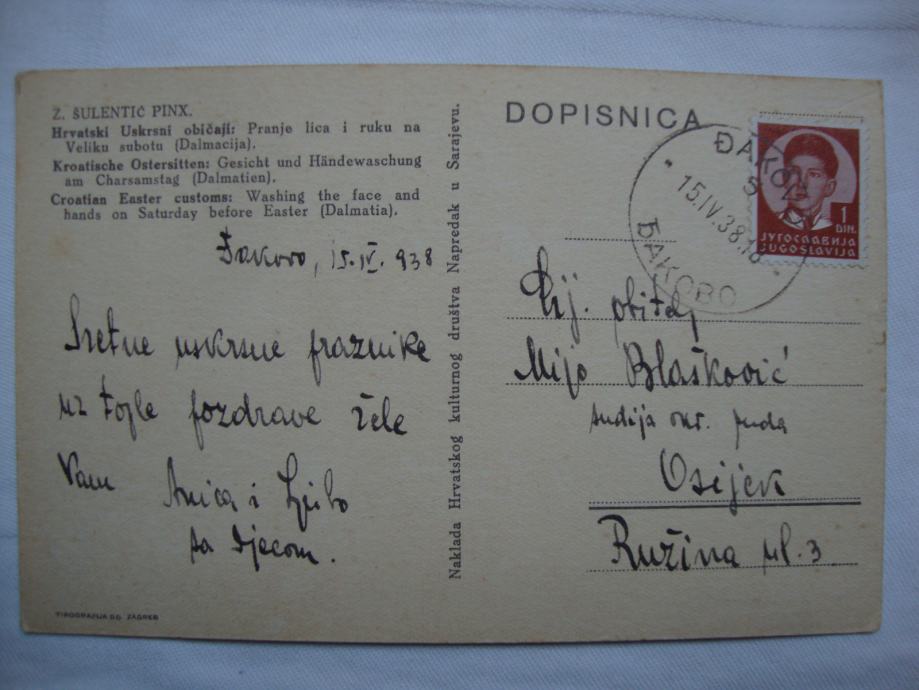 Z. ŠULENTIĆ PINX.
Hrvatski Uskrsni običaji: Pranje lica i ruku na
Veliku subotu (Dalmacija).
Kroatische Ostersitten: Gesicht und Händewaschung
am Charsamstag (Dalmatien).
Croatian Easter customs: Washing the face and
hands on Saturday before Easter (Dalmatia).
Đakovo, 15. IV. 938
Sretne uskrsne praznike
uz tople pozdrave žele
Vam Anica i Ljibo
sa djecom.
TIPOGRAFIJA D.D. ZAGREB
Naklada Hrvatskog kulturnog društva Napredak u Sarajevu.
DOPISNICA
ĐAKOVO
15.IV.38.18
ЂАКОВО
1
DIN.
ЈУГОСЛАВИЈА
JUGOSLAVIJA
Cij. obitelj
Mijo Blašković
sudija okr. suda
Osijek
Ružina ul. 3